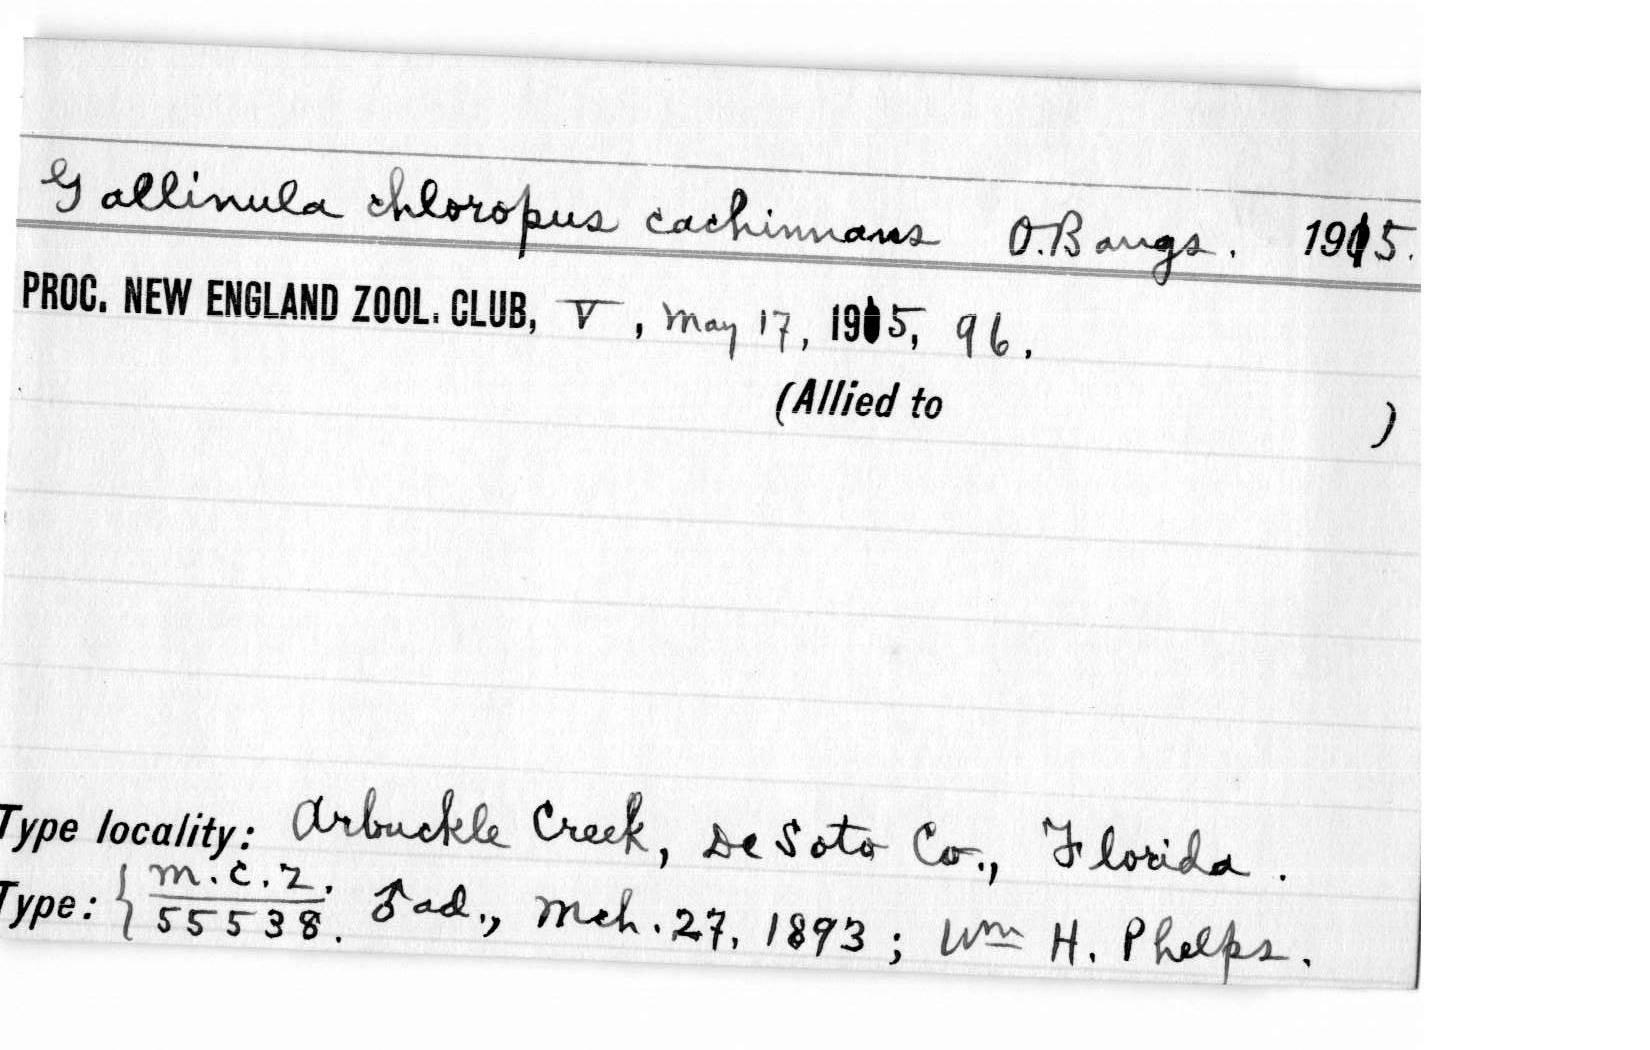 Gallinula chloropus cachinnans O. Bangs. 1915.
PROC. NEW ENGLAND ZOOL. CLUB, V, May 17, 1915, 96.
(Allied to )
Type locality: Arbuckle Creek, De Soto Co., Florida.
Type: { M.C.Z.
55538. ♂ ad., Mch. 27, 1893; Wm H. Phelps.